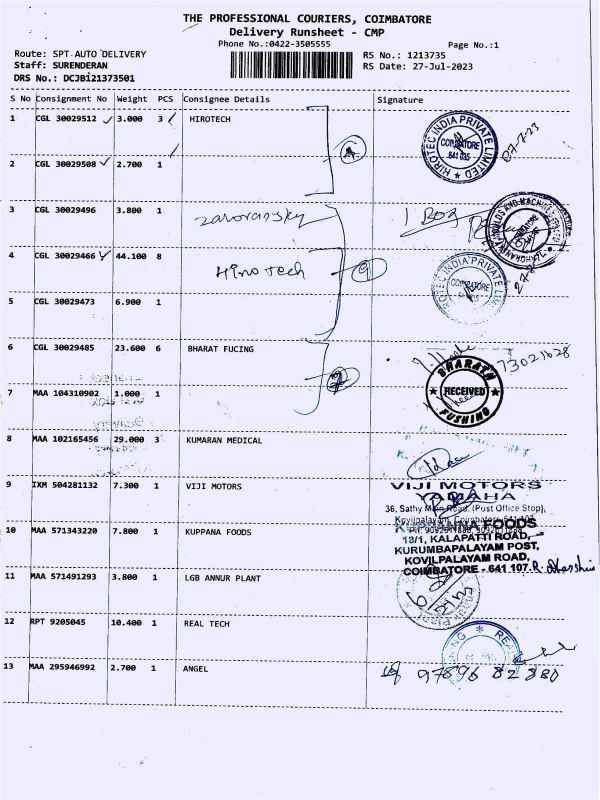 THE PROFESSIONAL COURIERS, COIMBATORE
Delivery Runsheet - CMP
Phone No.:0422-3505555
Page No.:1
Route: SPT AUTO DELIVERY
RS No.: 1213735
Staff: SURENDERAN
RS Date: 27-Jul-2023
DRS No.: DCJBi21373501
S No Consignment No Weight PCS Consignee Details Signature
1 CGL 30029512 3.000 3 HIROTECH
HIROTEC INDIA PRIVATE LIMITED
COIMBATORE
641 035
27-7-23
2 CGL 30029508 2.700 1
3 CGL 30029496 3.800 1
1 Box
4 CGL 30029466 44.100 8 HiroTech
HIROTEC INDIA PRIVATE LIMITED
COIMBATORE
5 CGL 30029473 6.900 1
6 CGL 30029485 23.600 6 BHARAT FUCING
73021628
BHARATH
RECEIVED
FUSHING
7 MAA 104310902 1.000 1
8 MAA 102165456 29.000 3 KUMARAN MEDICAL
9 IXM 504281132 7.300 1 VIJI MOTORS
VIJI MOTORS
YAMAHA
36, Sathy Main Road, (Post Office Stop),
Kovilpalayam,
10 MAA 571343220 7.800 1 KUPPANA FOODS
FOODS
18/1, KALAPATTI ROAD,
KURUMBAPALAYAM POST,
KOVILPALAYAM ROAD,
COIMBATORE - 641 107.
11 MAA 571491293 3.800 1 LGB ANNUR PLANT
12 RPT 9205045 10.400 1 REAL TECH
13 MAA 295946992 2.700 1 ANGEL
97896 82380